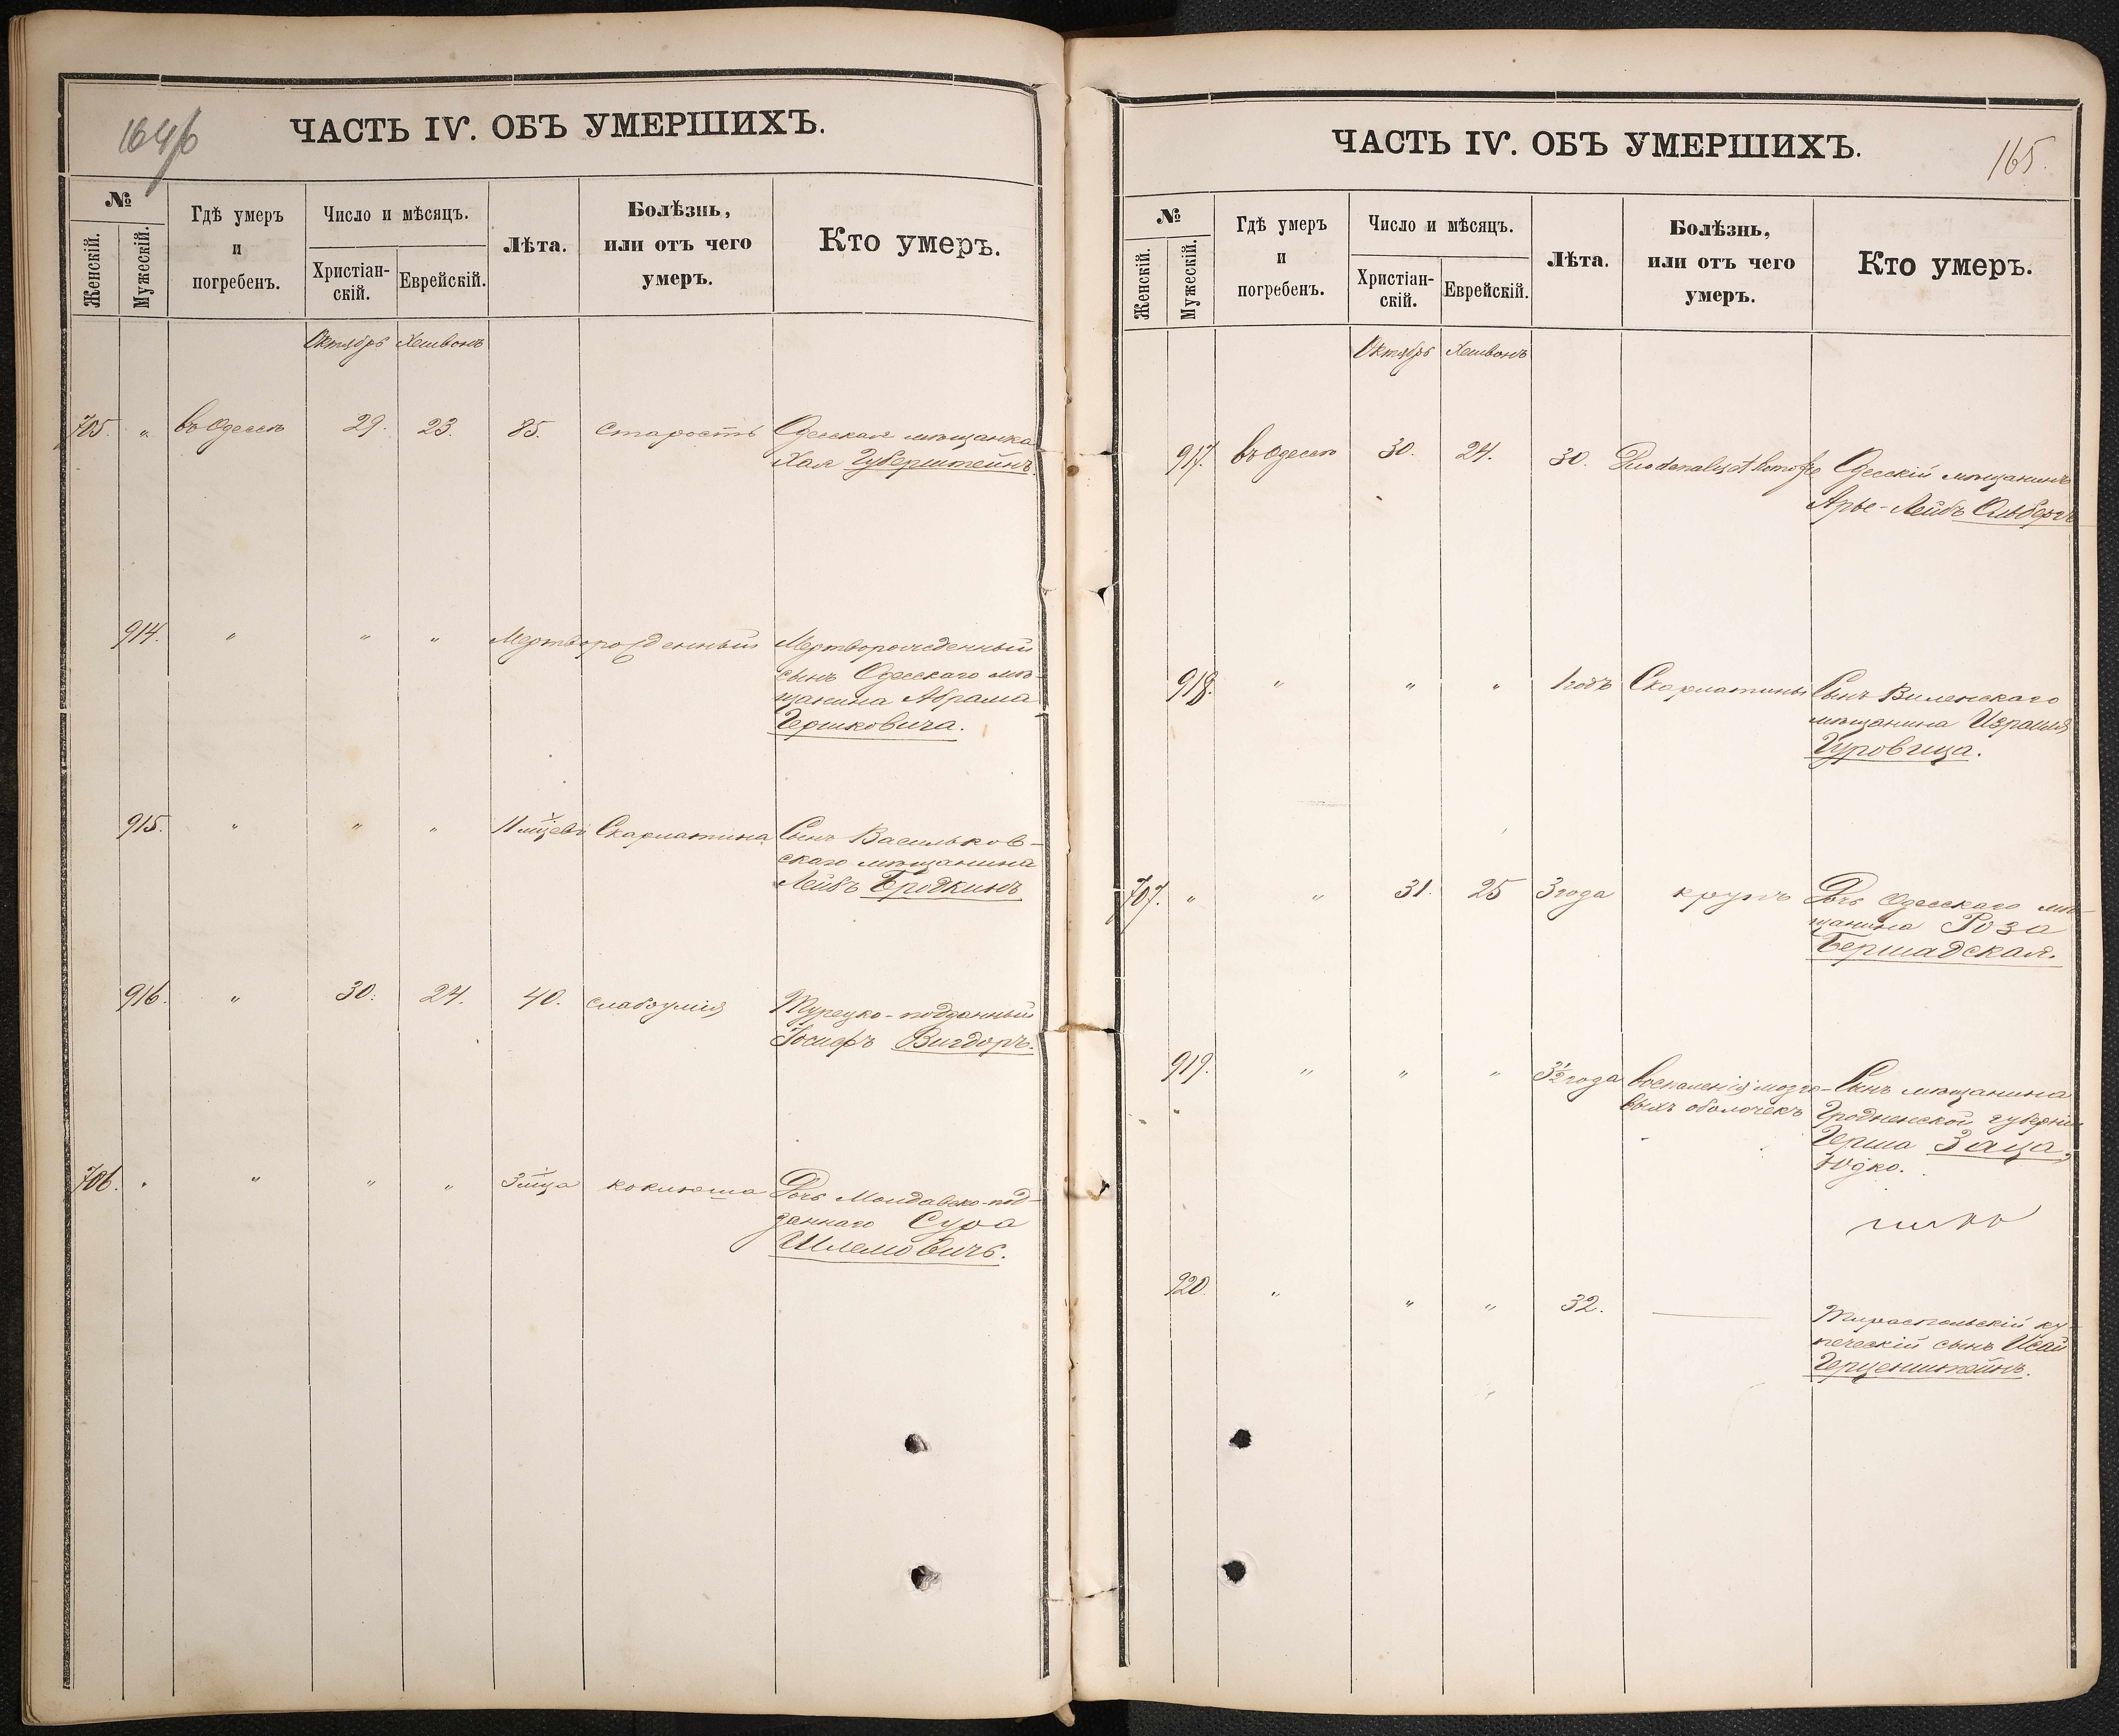 164/б
ЧАСТЬ IV. ОБЪ УМЕРШИХЪ.
№
Женскій.
Мужескій.
Гдѣ умеръ
и
погребенъ.
Число и мѣсяцъ.
Христіан-
скій.
Еврейскій.
Лѣта.
Болѣзнь,
или отъ чего
умеръ.
Кто умеръ.
Октябрь Хешвонъ
705. " въ Одессѣ 29. 23. 85. старость Одесская мѣщанка
Хая Губерштейнъ.
914. " " " Мертворожденный Мертворожденный
сынъ Одесскаго мѣ-
щанина Абрама
Гершковича.
915. " " " 11 мцевъ Скарлатина Сынъ Васильков-
скаго мѣщанина
Лейбъ Бродкинъ
916. " 30. 24. 40. слабоумія Турецко-подданный
Іосифъ Вигдоръ.
706. " " " " 3 мца коклюша Дочь Молдавско-под-
даннаго Сура
Шлемовичъ.
ЧАСТЬ IV. ОБЪ УМЕРШИХЪ.
165.
№
Женскій.
Мужескій.
Гдѣ умеръ
и
погребенъ.
Число и мѣсяцъ.
Христіан-
скій.
Еврейскій.
Лѣта.
Болѣзнь,
или отъ чего
умеръ.
Кто умеръ.
Октябрь Хешвонъ
917. въ Одессѣ 30. 24. 30. Одесскій мѣщанинъ
Арье-Лейбъ Ольбергъ
918. " " " 1 годъ Скарлатины Сынъ Виленскаго
мѣщанина Израиля
Гуровица.
707. " " 31. 25 3 года крупъ Дочь Одесскаго мѣ-
щанина Роза
Бершадская.
919. " " " 3½ года воспаленія мозго- Сынъ мѣщанина
выхъ оболочекъ Гродненской губерніи
Герша Заца,
Юдко.
920. " " " 32. Тираспольскій ку-
печескій сынъ Исай
Герценштейнъ.